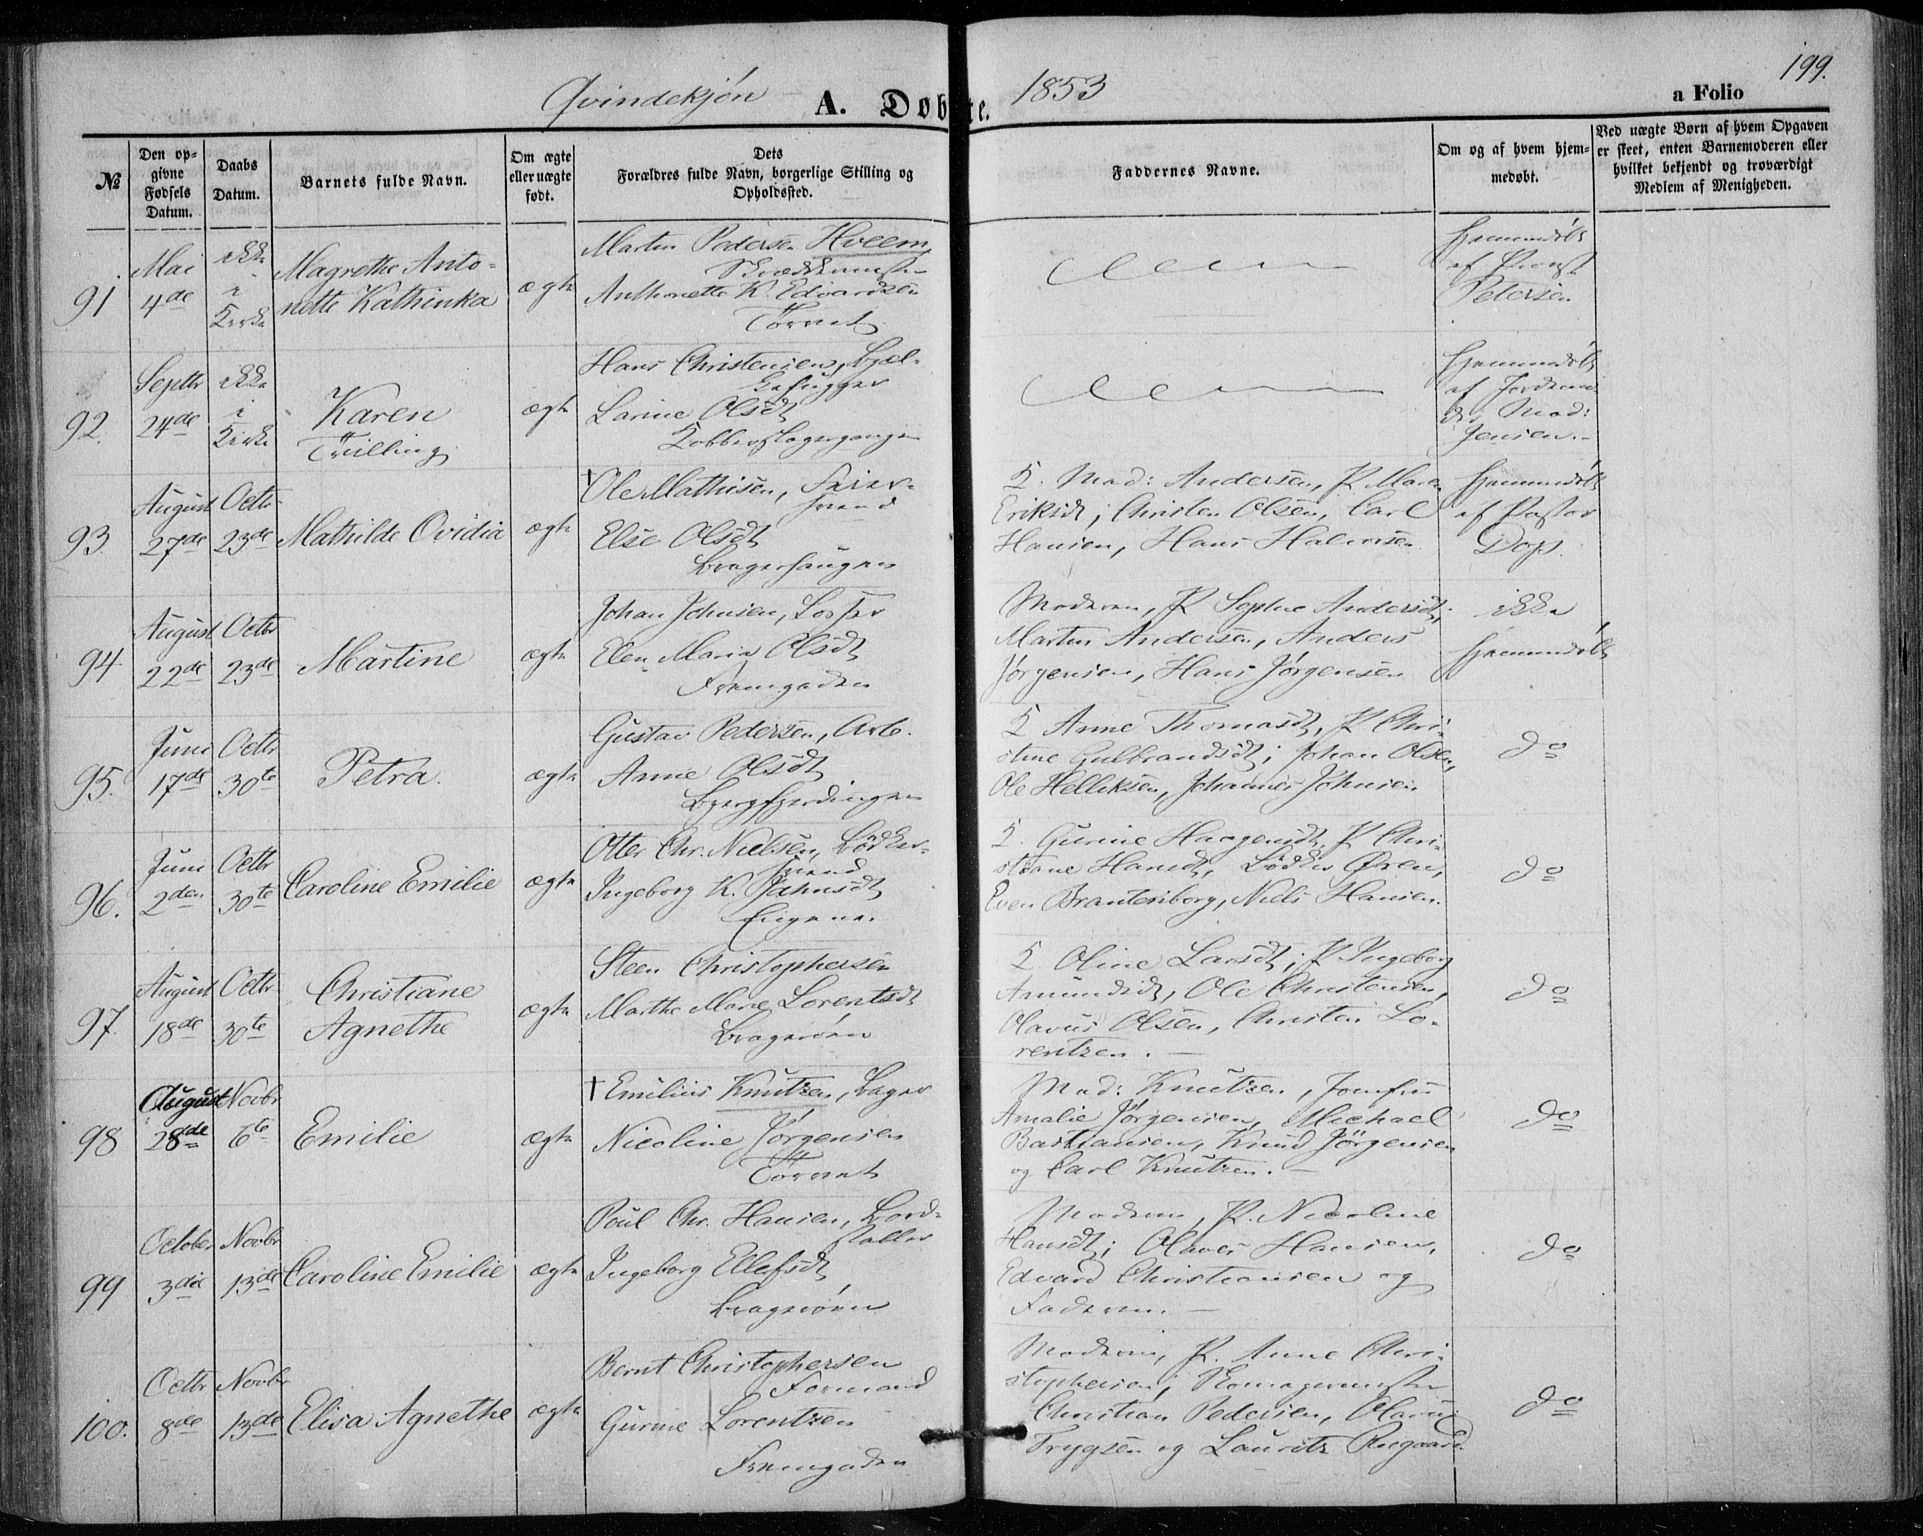 Qvindekjön A. Döbte. 1853
199.
a Folio
№
Den op-
givne
Fødsels
Datum.
Daabs
Datum.
Barnets fulde Navn.
Om ægte
eller uægte
født.
Dets
Forældres fulde Navn, borgerlige Stilling og
Opholdssted.
Faddernes Navne.
Om og af hvem hjem-
medøbt.
Ved uægte Børn af hvem Opgaven
er skeet, enten Barnemoderen eller
hvilket bekjendt og troværdigt
Medlem af Menigheden.
91
Mai
4de
ikke
i
Kirke
Magrethe Anto-
nette Kathinka
ægte
Martin Pedersen Hveem
Anthonette K. Edvardsen
Torvet
Hjemmedöbt
af Provst
Petersen
92.
Septbr
24de
ikke
i
Kirke
Karen
Trilling
ægte
Hans Christensen, Bjæl-
kehugger
Larine Olsdt
Kobberslagergangen
Hjemmedöbt
af Jordemo-
der Mad:
Jensen.
93.
August
27de
Octbr
23de
Mathilde Ovidia
ægte
† Ole Mathisen,
Else Olsdt
Bragerhaugen
K. Mad: Andersen, P. Maren
Eriksdt; Christen Olsen, Carl
Hansen, Hans Halvorsen
Hjemmedöbt
af Pastor
Dops.
94.
August
22de
Octbr
23de
Martine
ægte
Johan Johnsen, Losser
Elen Maria Olsdt
Fremgaden
Moderen, P. Sophie Andersdt,
Martin Andersen, Anders
Jörgensen, Hans Jörgensen
ikke
hjemmedöbt
95.
Juni
17de
Octbr
30te
Petra.
ægte
Gustav Pedersen, Arb.
Anne Olsdt
Bjergfjerdingen
K. Anne Thomasdt, P. Chri-
stine Gulbrandsdt; Johan Olsen,
Ole Helliksen, Johannes Johnsen
do
96.
Juni
2den
Octbr
30te
Caroline Emilie
ægte
Otter Chr. Nielsen, Bödker-
svend
Ingeborg K. Jahnsdt
Engene.
K. Gurine Haagensdt, P. Chri-
stiane Hansdt, Bödker Ören,
Even Brantenborg, Niels Hansen.
do
97.
August
18de
Octbr
30te
Christiane
Agnethe
ægte
Steen Christophersen
Marthe Marie Lorentsdt
Bragerøen
K. Oline Larsdt; P. Ingeborg
Amundsdt, Ole Christensen,
Olavus Olsen, Christen Lo-
rentzen.
do
98
August
28de
Novbr
6te
Emilie
ægte
† Emilius Knutzen, Bager
Nicoline Jörgensen
Torvet
Mad: Knutzen, Jomfru
Amalie Jörgensen, Michael
Bastiansen, Knud Jörgensen
og Carl Knutzen.
do
99
October
3die
Novbr
13de
Caroline Emilie
ægte
Poul Chr. Hansen, Bord-
stabler
Ingeborg Ellefsdt
Bragerøen
Moderen, P. Nicoline
Hansdt; Olaves Hansen,
Edvard Christiansen og
Faderen.
do
100.
Octbr
8de
Novbr
13de
Elisa Agnethe
ægte
Bernt Christophersen
Formand
Gurine Lorentzen
Fremgaden
Moderen, P. Anne Chri-
stophersen;
Christian Pedersen, Olavus
Trygsen og Laurits Ruegaard
do